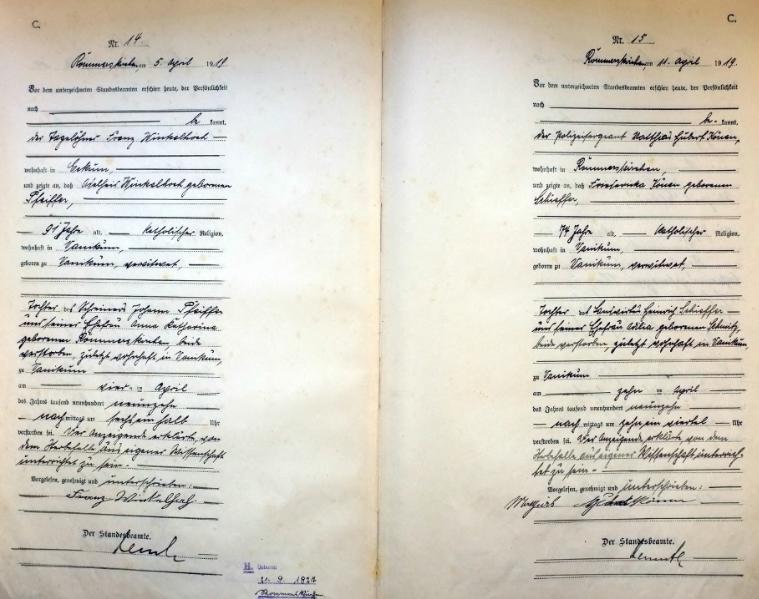 C.
Nr. 14.
Rommerskirchen, am 5. April 1919
Vor dem unterzeichneten Standesbeamten erschien heute, der Persönlichkeit
nach
be kannt,
der Tagelöhner Franz Winkelhoch
wohnhaft in Eckum,
und zeigte an, daß Winkelhoch geborenen
Pfeiffer,
91 Jahre alt, katholischer Religion,
wohnhaft in Vanikum,
geboren zu Vanikum, verwitwet,
Tochter des Schreiners Johann Pfeiffer
und seiner Ehefrau Anna Katharina
geborenen Rommerskirchen, beide
verstorben, zuletzt wohnhaft in Vanikum,
zu Vanikum
am vier ten April
des Jahres tausend neunhundert neunzehn
nach mittags um sechseinhalb Uhr
verstorben sei. Der Anzeigende erklärte, von
dem Sterbefalle aus eigener Wissenschaft
unterrichtet zu sein.
Vorgelesen, genehmigt und unterschrieben:
Franz Winkelhoch.
Der Standesbeamte.
21. 9. 1937
C.
Nr. 15
Rommerskirchen, am 11. April 1919.
Vor dem unterzeichneten Standesbeamten erschien heute, der Persönlichkeit
nach
be kannt,
der Polizeisergeant Matthias Hubert Könen,
wohnhaft in Rommerskirchen,
und zeigte an, daß Könen geborenen
Schieffer,
74 Jahre alt, katholischer Religion,
wohnhaft in Vanikum,
geboren zu Vanikum, verwitwet,
Tochter des Landwirten Heinrich Schieffer
und seiner Ehefrau geborenen Schmitz,
beide verstorben, zuletzt wohnhaft in Vanikum
zu Vanikum
am zehn ten April
des Jahres tausend neunhundert neunzehn
nach mittags um zehn ein viertel Uhr
verstorben sei. Der Anzeigende erklärte von dem
Sterbefalle aus eigener Wissenschaft unterrich-
tet zu sein.
Vorgelesen, genehmigt und unterschrieben:
Der Standesbeamte.